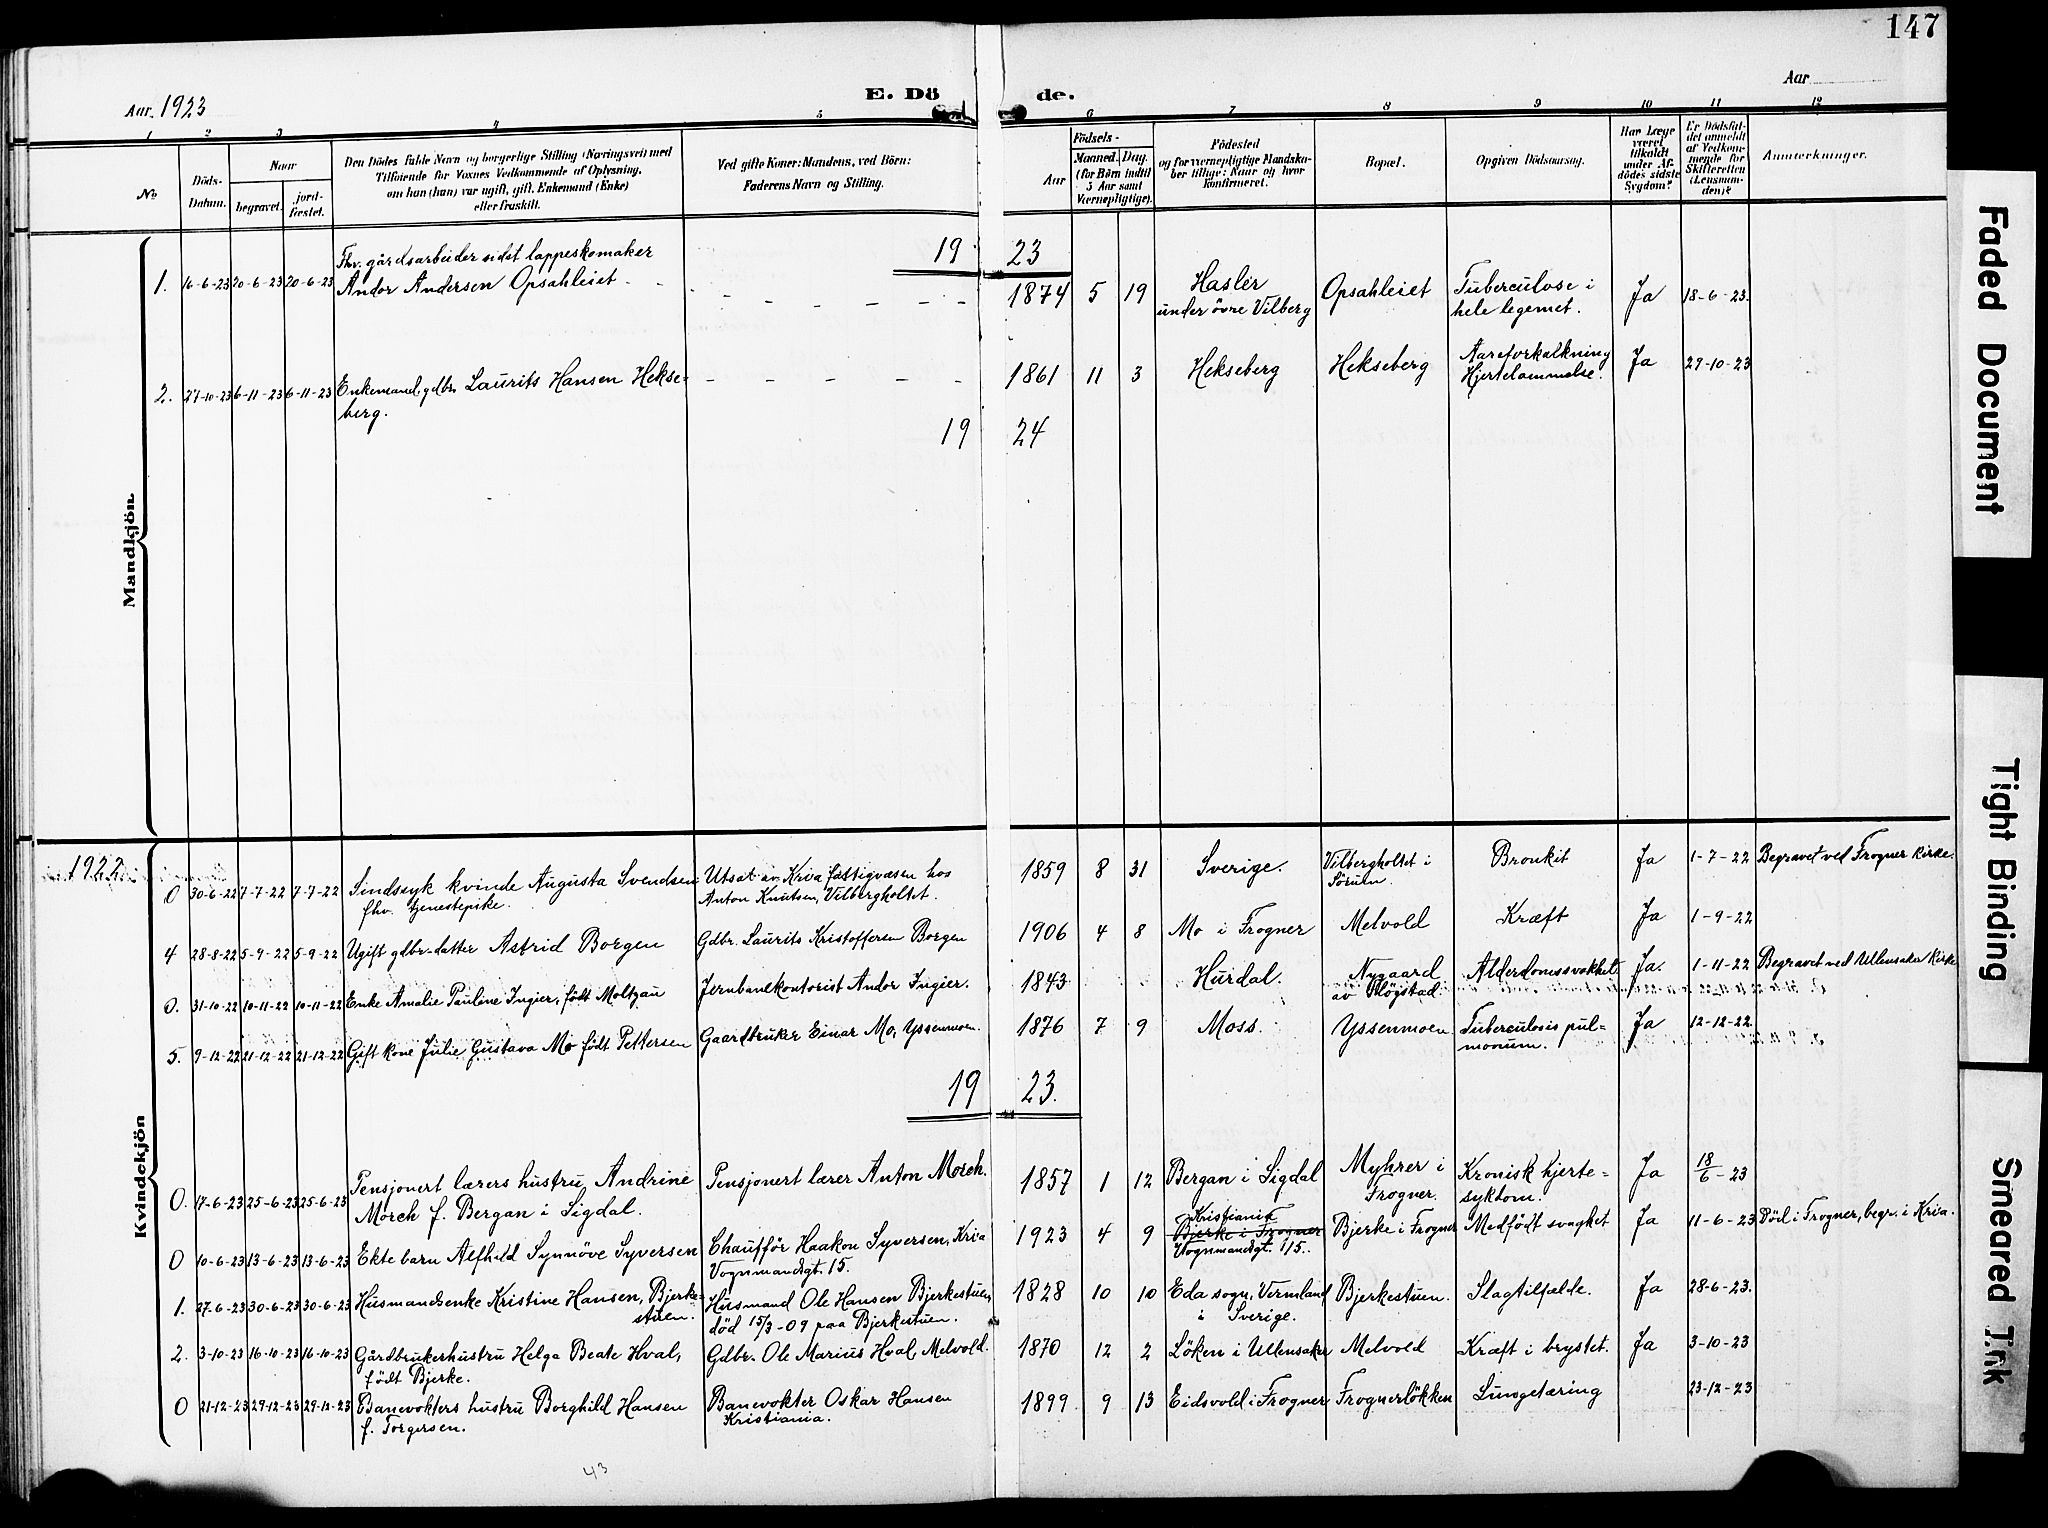 147
Aar 1923
E. Döde.
Aar
1 2 3 4 5 6 7 8 9 10 11 12
No
Döds-Datum.
Naar
begravet.
jord-fæstet.
Den Dödes fulde Navn og borgerlige Stilling (Næringsvei) med
Tilföiende for Voxnes Vedkommende af Oplysning,
om han (hun) var ugift, gift, Enkemand (Enke)
eller fraskilt.
Ved gifte Koner: Mandens, ved Börn:
Faderens Navn og Stilling.
Födsels-
Aar
Maaned. Dag.
(for Börn indtil
5 Aar samt
Værnepligtige).
Födested
og for værnepligtige Mandska-
ber tillige: Naar og hvor
konfirmeret.
Bopæl.
Opgiven Dödsaarsag.
Har Læge
været
tilkaldt
under Af-
dödes sidste
Sygdom?
Er Dödsfal-
det anmeldt
af Vedkom-
mende for
Skifteretten
(Lensman-
den)?
Anmærkninger.
Mandkjön
1923
Fhv. gårdsarbeider sidst lappeskomaker
1. 16-6-23 20-6-23 20-6-23 Andor Andersen Opsahleiet - - - - - - 1874 5 19 Hasler Opsahleiet Tuberculose i Ja 18-6-23.
under övre Vilberg hele legemet.
2. 27-10-23 6-11-23 6-11-23 Enkemand, gdbr. Laurits Hansen Hekse- - - - - - 1861 11 3 Hekseberg Hekseberg Aareforkalkning Ja 29-10-23
berg. Hjertelammelse.
1924
Kvindekjön
1922
0 30-6-22 7-7-22 7-7-22 Sindssyk kvinde Augusta Svendsen Utsat av Kria fattigvæsen hos 1859 8 31 Sverige. Vilbergholtet i Bronkit Ja 1-7-22 Begravet ved Frogner kirke.
fhv. tjenestepike. Anton Knutsen, Vilbergholtet. Sörum.
4 28-8-22 5-9-22 5-9-22 Ugift gdbr.-datter Astrid Borgen Gdbr. Laurits Kristoffersen Borgen 1906 4 8 Mo i Frogner Melvold Kræft Ja 1-9-22
0. 31-10-22 10-11-22 10-11-22 Enke Amalie Pauline Ingier, født Moltzau Jernbanekontorist Andor Ingier. 1843 Hurdal. Nygaard Alderdomssvakhet Ja. 1-11-22 Begravet ved Ullensaker Kirke
av Pløgstad.
5. 9-12-22 21-12-22 21-12-22 Gift kone Julie Gustava Mo født Pettersen Gaardbruker Einar Mo, Yssenmoen. 1876 7 9 Moss. Yssenmoen Tuberculosis pul- Ja 12-12-22.
monum.
1923.
0. 17-6-23 25-6-23 25-6-23 Pensjonert lærers hustru, Andrine Pensjonert lærer Anton Morch. 1857 1 12 Bergan i Sigdal Myhrer i Kronisk hjerte- Ja 18/6-23
Morch f. Bergan i Sigdal. Frogner. syktom.
Kristiania
0 10-6-23 13-6-23 13-6-23 Ekte barn Alfhild Synnöve Syversen Chaufför Haakon Syversen, Kria 1923 4 9 Bjerke i Frogner Bjerke i Frogner Medfödt svaghet Ja 11-6-23 Död i Frogner, begr. i Kria.
Vognmandsgt. 15. Vognmandsgt. 15.
1. 27-6-23 30-6-23 30-6-23 Husmandsenke Kristine Hansen, Bjerke- Husmand Ole Hansen Bjerkestuen, 1828 10 10 Eda sogn, Vermland Bjerkestuen. Slagtilfælde. Ja 28-6-23.
stuen. död 15/3-09 paa Bjerkestuen. i Sverige.
2. 3-10-23 16-10-23 16-10-23 Gårdbrukerhustru Helga Beate Hval, Gdbr. Ole Marius Hval, Melvold. 1870 12 2 Löken i Ullensaker Melvold Kræft i brystet. Ja 3-10-23
født Bjerke.
0 21-12-23 29-12-23 29-12-23 Banevokters hustru Borghild Hansen Banevokter Oskar Hansen 1899 9 13 Eidsvold i Frogner Frognerlökken Lungetæring 23-12-23
f. Torgersen. Kristiania.
43
Faded Document
Tight Binding
Smeared Ink